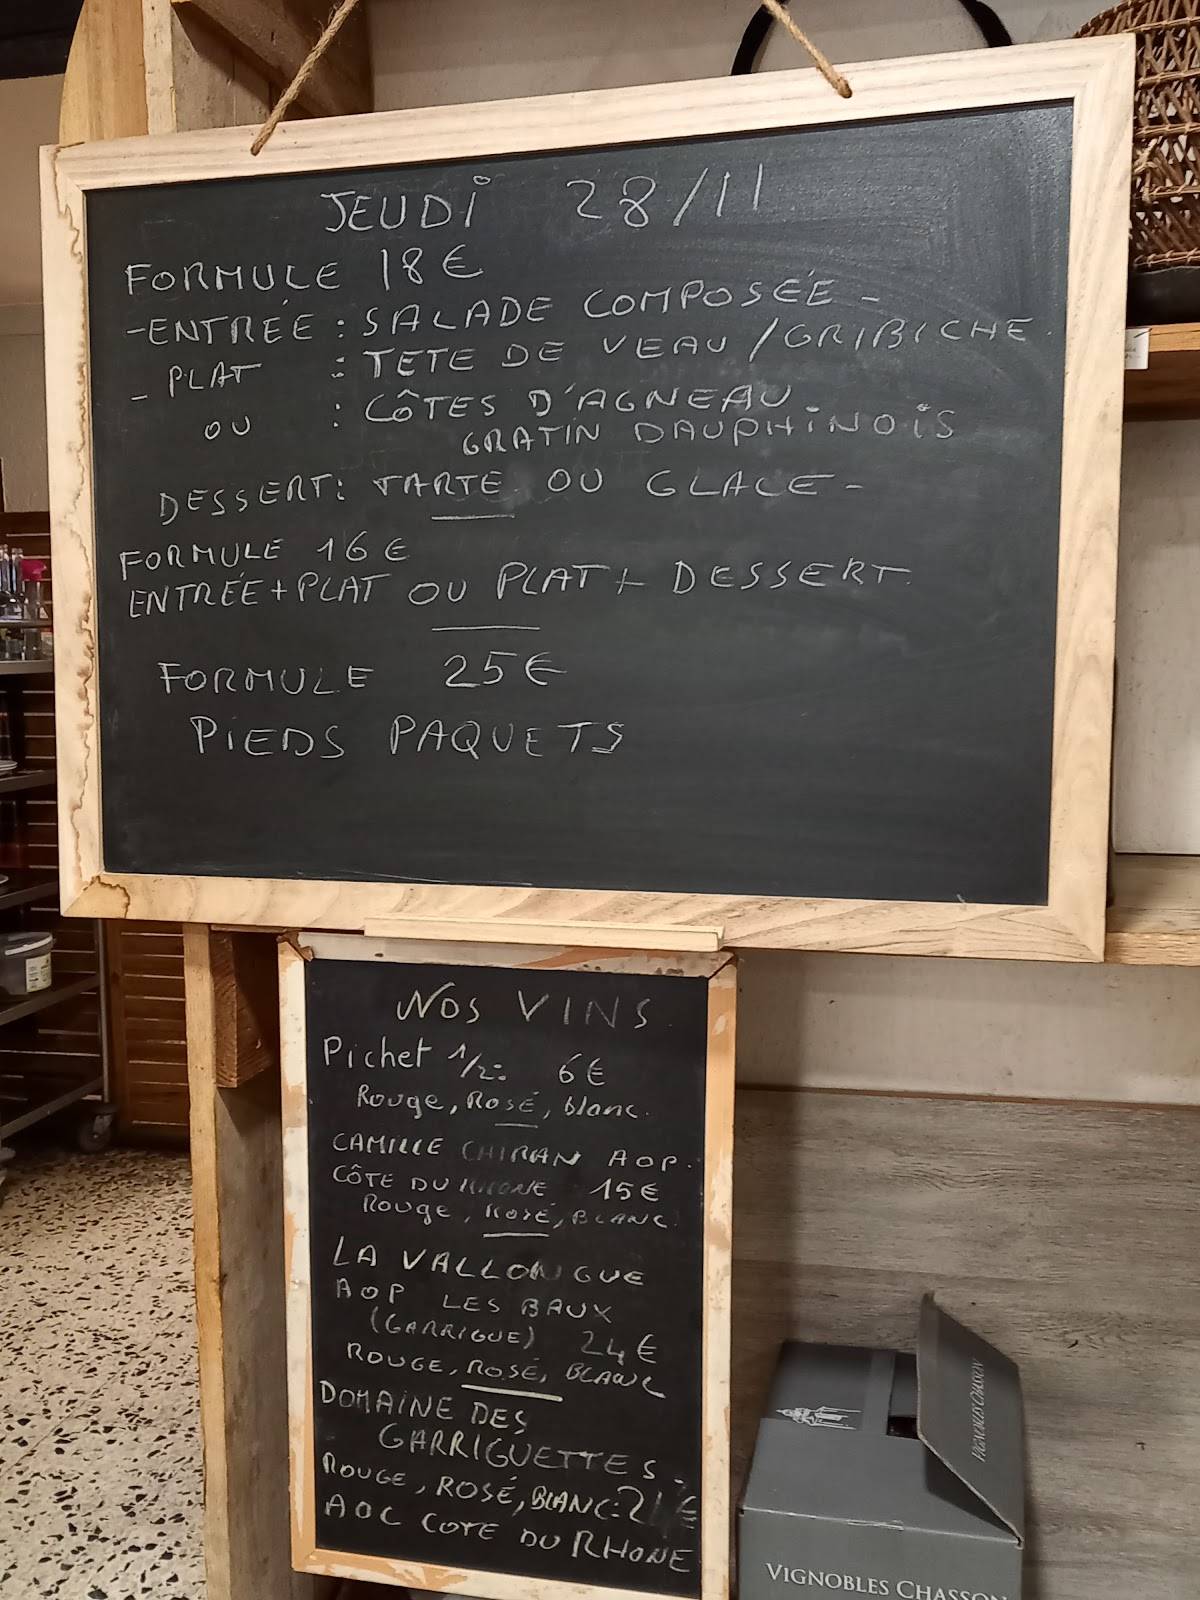 JEUDI 28/11
FORMULE 18€
-ENTRÉE : SALADE COMPOSÉE -
- PLAT : TETE DE VEAU / GRIBICHE.
OU : CÔTES D'AGNEAU
GRATIN DAUPHINOIS
DESSERT: TARTE OU GLACE -
FORMULE 16€
ENTRÉE + PLAT OU PLAT + DESSERT.
FORMULE 25€
PIEDS PAQUETS
NOS VINS
Pichet 1/2: 6€
Rouge, Rosé, blanc.
CAMILLE CHIRAN AOP.
CÔTE DU RHONE 15€
Rouge, ROSÉ, BLANC.
LA VALLONGUE
AOP LES BAUX
(GARRIGUE) 24€
ROUGE, ROSÉ, BLANC
DOMAINE DES
GARRIGUETTES.
ROUGE, ROSÉ, BLANC:
AOC COTE DU RHONE
VIGNOBLES CHASSON
VIGNOBLES CHASSON